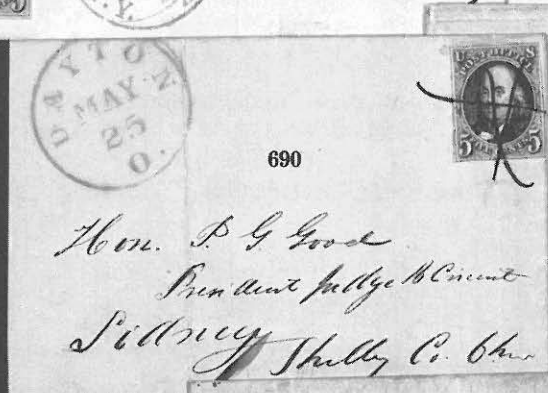 DAYTON
MAY
25
O.
U S
POST OFFICE
5 CENTS 5
690
Hon. P G Good
President Judge Circuit
Sidney Shelby Co. Ohio
5
Y.